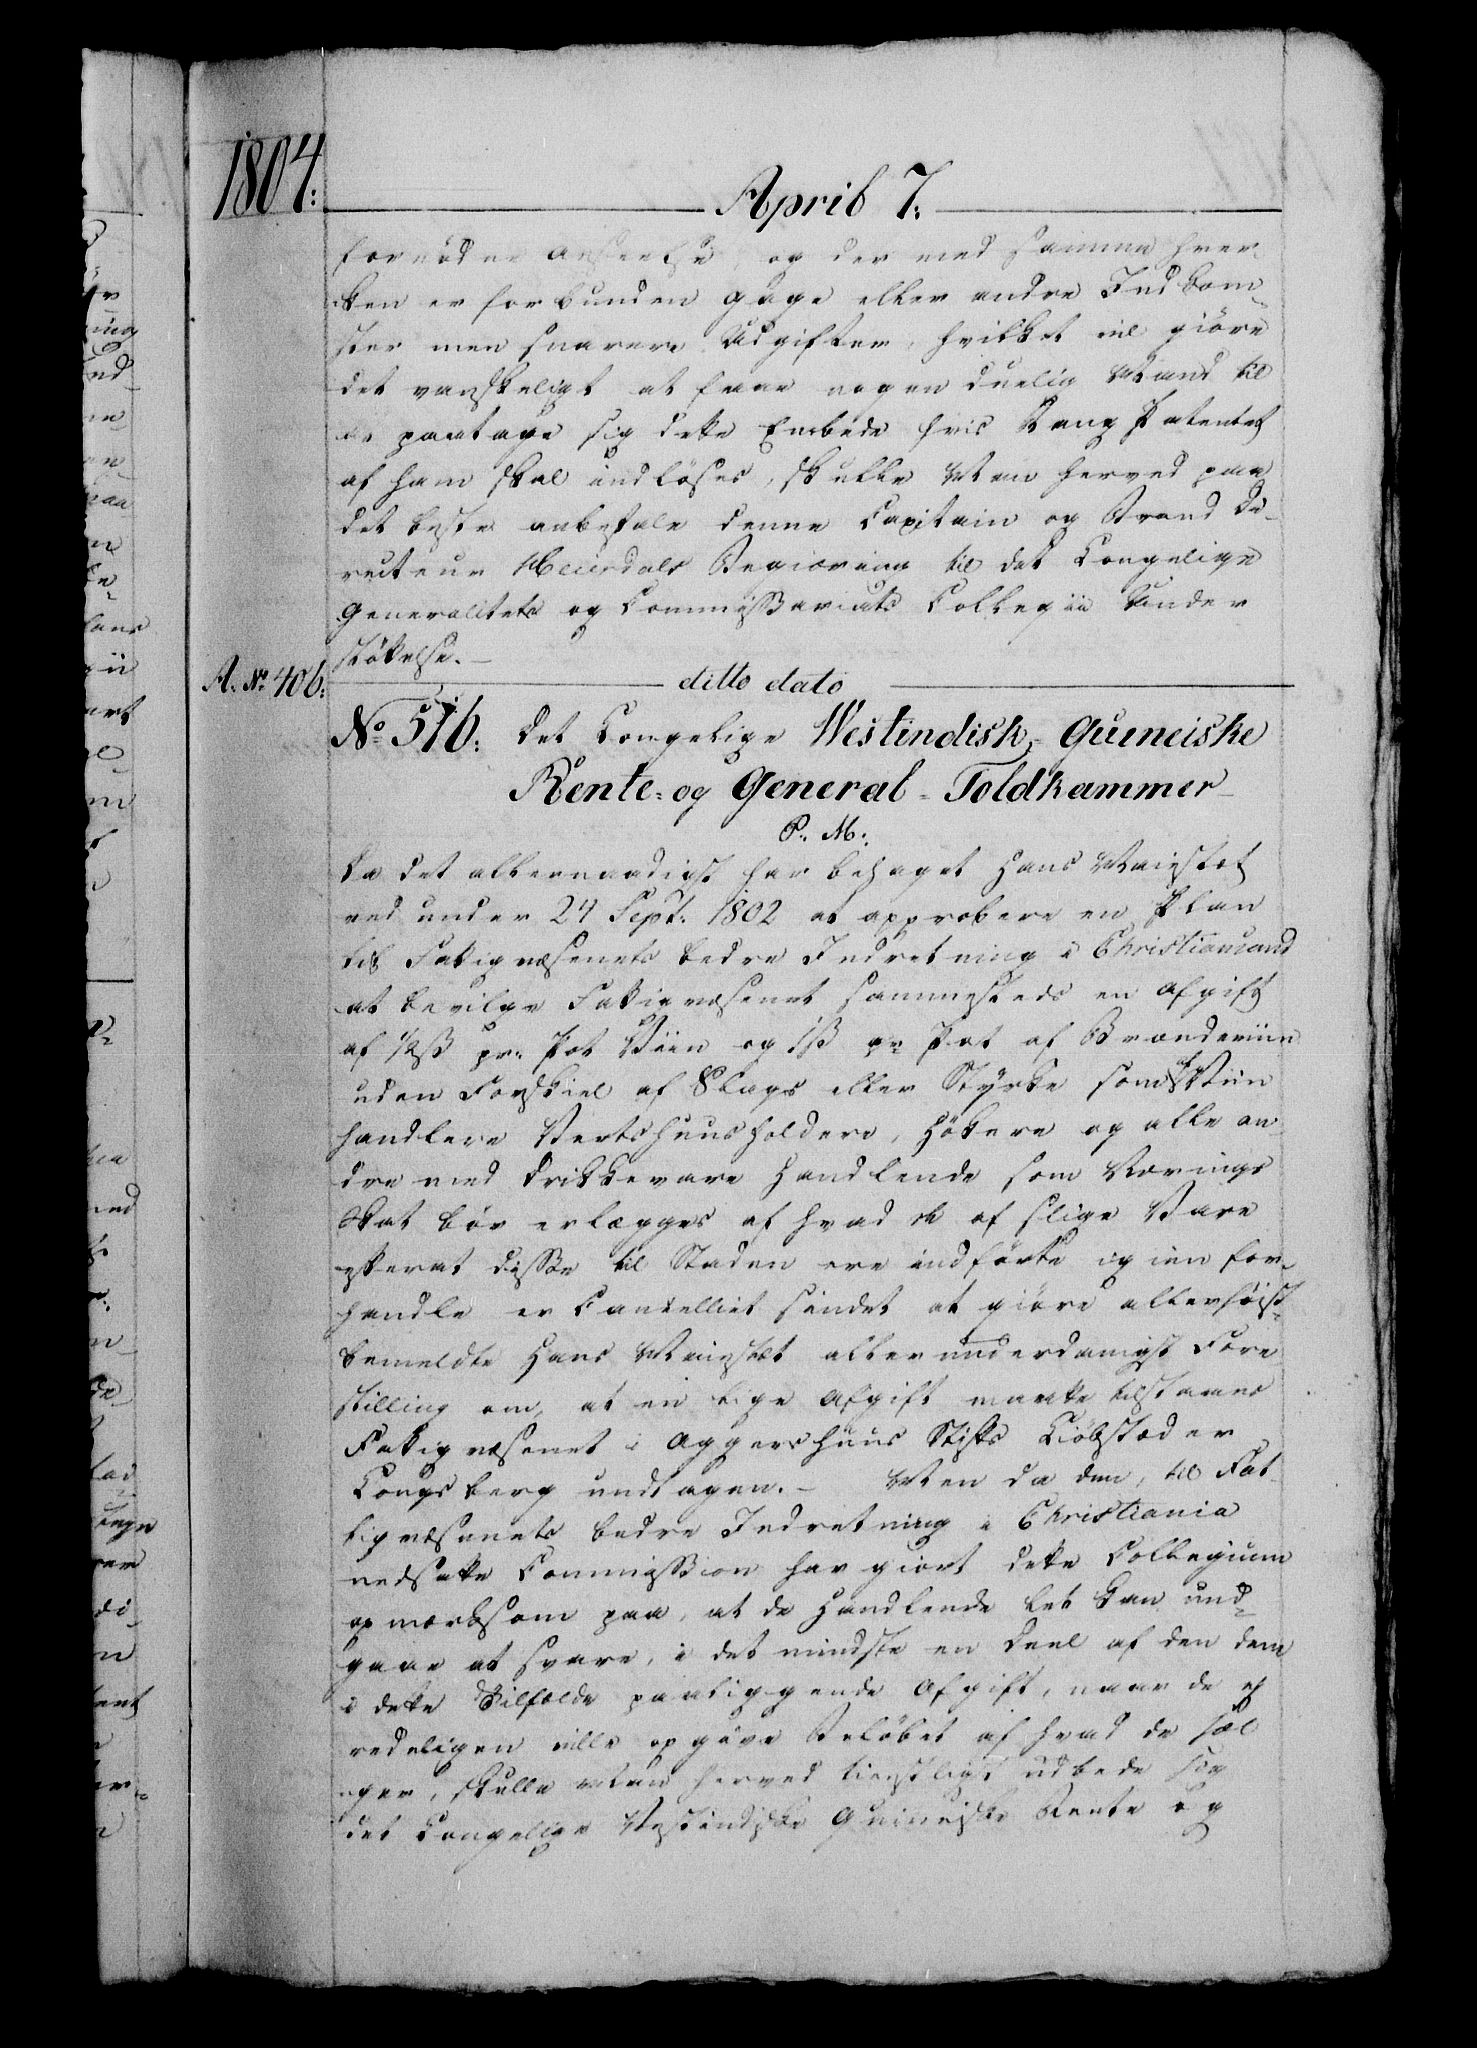 1804.
April 7.
fornødne Anseelse, og der med samme hver-
ken er forbunden Gage eller andre Indkom-
ster men snarere Udgifter, hvilket vil giøre
det vanskeligt at faae nogen duelig Mand til
at paatage sig dette Embede hvis Rang Patentet
af ham skal indløses, skulle Man herved paa
det beste anbefale denne Capitain og Brand Di-
recteur Begiæring til det Kongelige
Generalitets og Commissariats Collegii Under
støttelse.-
A. No. 406. ditto dato
No 516. Det Kongelige Westindisk, Guineiske
Rente- og General-Toldkammer
P. M.
Da det allernaadigst har behaget Hans Majestæt
ved under 24 Sept. 1802 at approbere en Plan
til Fattigvæsenets bedre Indretning i Christiansand
at bevilge Fattigvæsenet sammesteds en Afgift
af ½ß pr. Pot Viin og 1ß pr Pot af Brændeviin
uden Forskiel af Slags eller Styrke som Viin
handlere Vertshuusholdere, Høkere og alle an
dre med Drikkevare Handlende som Nærings
Skat bør erlægges af hvad de af slige Vare
efterat disse til Staden ere indførte igien for-
handle er Cancelliet sindet at giøre allerhøist-
bemeldte Hans Majestæt allerunderdanigst Fore
stilling om, at en lige Afgift maatte tilstaaes
Fattigvæsenet i Aggershuus Stifts Kiøbstæder
Kongsberg undtagen.- Men da den, til Fat-
tigvæsenets bedre Indretning i Christiania
nedsatte Commission har giort dette Collegium
opmærksom paa, at de Handlende let kan und-
gaae at svare, i det mindste en Deel af den dem
i dette Tilfælde paaliggende Afgift, naar de ej
redeligen ville opgive Beløbet af hvad de sæl
ger, skulle Man herved tienstligst udbede sig
det Kongelige Vestindiske Guineiske Rente og